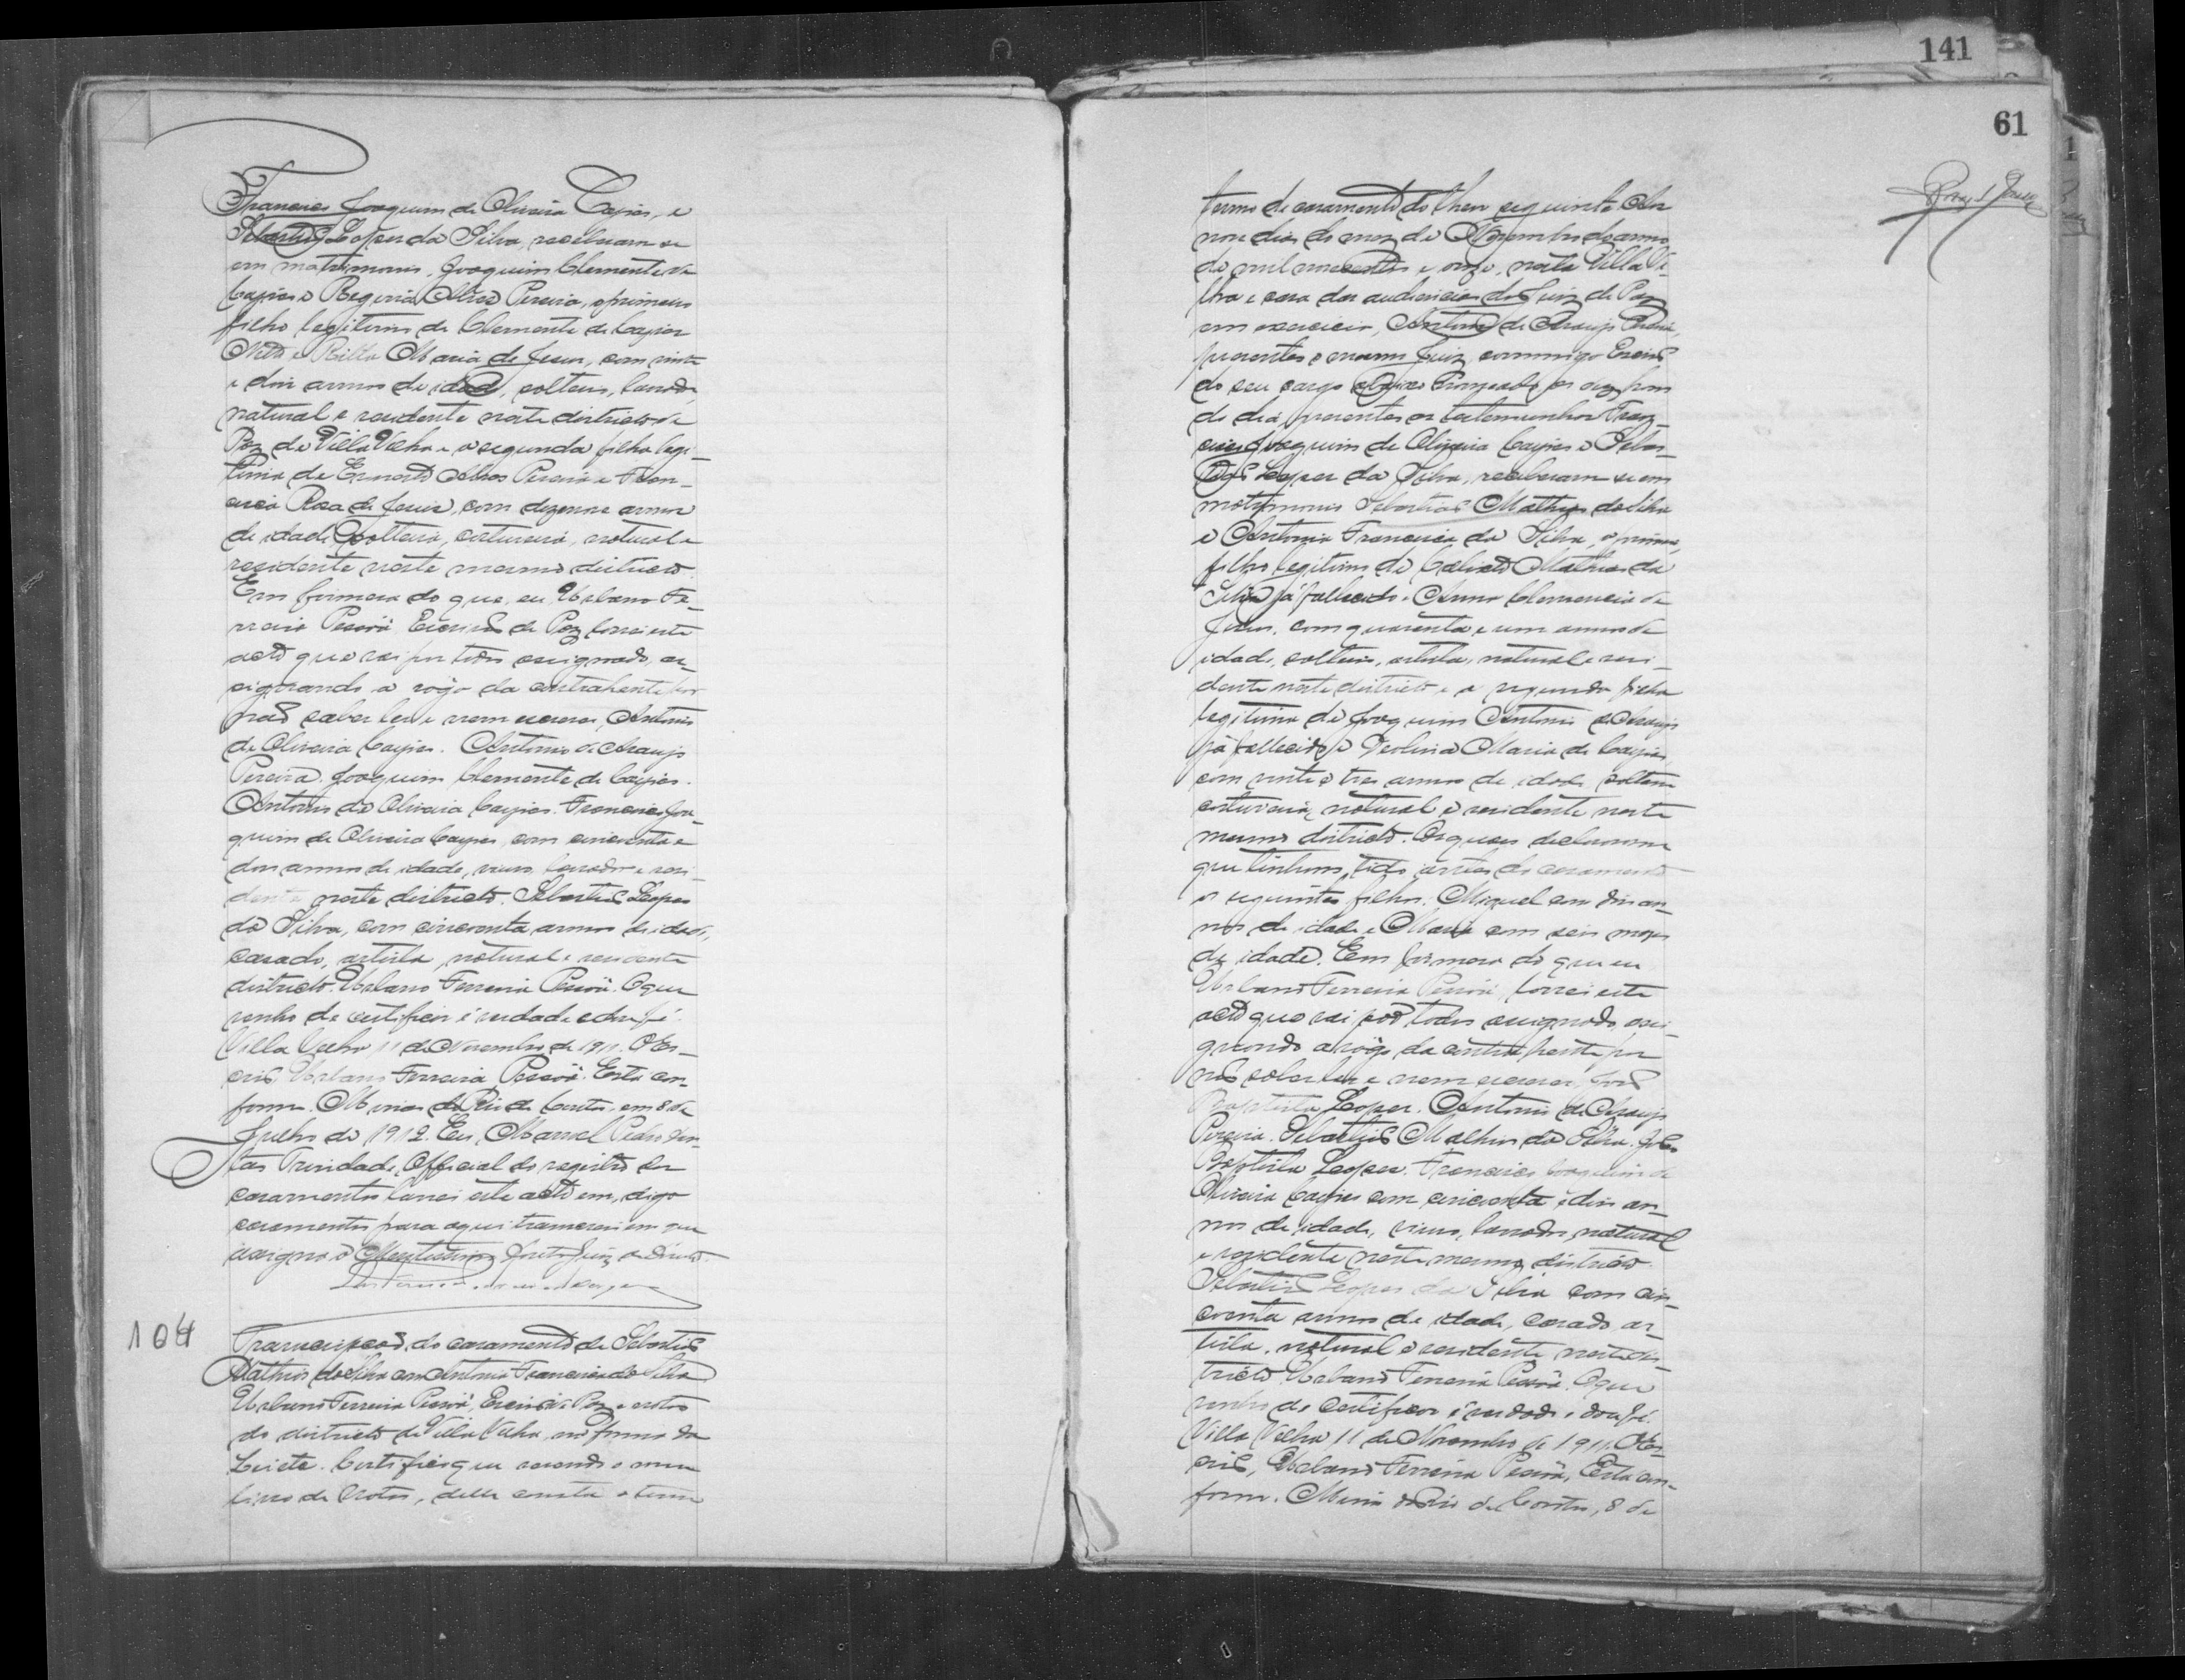 141
61
Francisco Joaquim de Oliveira Caypes, e
Sebastião Lopes da Silva, receberam se
em matrimonio, Joaquim Clemente de
Caypes e Regina Alves Pereira, o primeiro
filho legitimo de Clemente de Caypes
Netto e Ritta Maria de Jesus, com vinte
e dois annos de idade, solteiro, lavrador
natural e residente neste districto de
Paz de Villa Velha e a segunda filha legi-
tima de Ernesto Alves Pereira e Fran-
cisca Rosa de Jesus, com dezenove annos
de idade solteira, costureira, natural e
residente neste mesmo districto.
Em firmesa do que, eu Urbano Fe-
rreira Pessôa Escrivão de Paz lavrei este
acto que vai por todos assignado, as-
signando a rogo da contrahente por
não saber ler e nem escrever, Antonio
de Oliveira Caypes. Antonio de Araujo
Pereira. Joaquim Clemente de Caypes.
Antonio de Oliveira Caypes. Francisco Joa-
quim de Oliveira Caypes, com cincoenta e
dois annos de idade, viuvo, lavrador e resi-
dente neste districto. Sebastião Lopes
da Silva, com cincoenta annos de idade,
casado, artista, natural e residente
districto. Urbano Ferreira Pessôa. O que
venho de certificar é verdade e dou fé.
Villa Velha 11 de Novembro de 1911. O Es-
crivão, Urbano Ferreira Pessôa. Está con-
forme. Minas do Rio de Contas, em 8 de
Julho de 1912. Eu, Manoel Pedro Dan-
tas Trindade, Official do registro dos
casamentos lavrei este acto em, digo
casamentos para aqui transcrevi em que
assigna o Meritissimo Juiz de Direito.
104
Transcripção do casamento de Sebastião
Mathias da Silva com Antonia Francisca da Silva
Urbano Ferreira Pessôa, Escrivão de Paz e notas
do districto de Villa Velha, na forma da
Lei etc. Certifico que revendo o meu
livro de Notas, delle consta o termo
termo de casamento do theor seguinte Aos
nove dias do mez de Novembro do anno
de mil novecentos e onze, nesta Villa Ve-
lha e casa das audiencias do Juiz de Paz
em exercicio, Antonio de Araujo Pereira,
presentes o mesmo Juiz commigo Escrivão
do seu cargo abaixo nomeado as dez horas
do dia, presentes as testemunhas Fran-
cisco Joaquim de Oliveira Caypes e Sebas-
tião Lopes da Silva, receberam se em
matrimonio Sebastião Mathias da Silva
e Antonia Francisca da Silva, o primeiro
filho legitimo de Calisto Mathias da
Silva já fallecido e Anna Clemencia de
Jesus, com quarenta e um annos de
idade, solteiro, artista, natural e resi-
dente neste districto e a segunda filha
legitima de Joaquim Antonio de Araujo
já fallecido e Maria de Caypes
com vinte e tres annos de idade solteira
costureira, natural e residente neste
mesmo districto. Os quaes declararam
que tinham tido antes do casamento
os seguintes filhos. Miguel com dois an-
nos de idade e Maria com seis mezes
de idade. Em firmesa do que eu
Urbano Ferreira Pessôa, lavrei este
acto que vai por todos assignado, assi-
gnando a rogo da contrahente por
não saber ler e nem escrever, João
Baptista Lopes. Antonio de Araujo
Pereira. Sebastião Mathias da Silva. João
Baptista Lopes. Francisco Joaquim de
Oliveira Caypes com cincoenta e dois an-
nos de idade, viuvo, lavrador natural
e residente neste mesmo districto.
Sebastião Lopes da Silva com cin-
coenta annos de idade, casado, ar-
tista, natural e residente neste dis-
tricto. Urbano Ferreira Pessôa. O que
venho de certificar é verdade e dou fé.
Villa Velha 11 de Novembro de 1911. O Es-
crivão, Urbano Ferreira Pessôa, Está con-
forme. Minas do Rio de Contas, 8 de